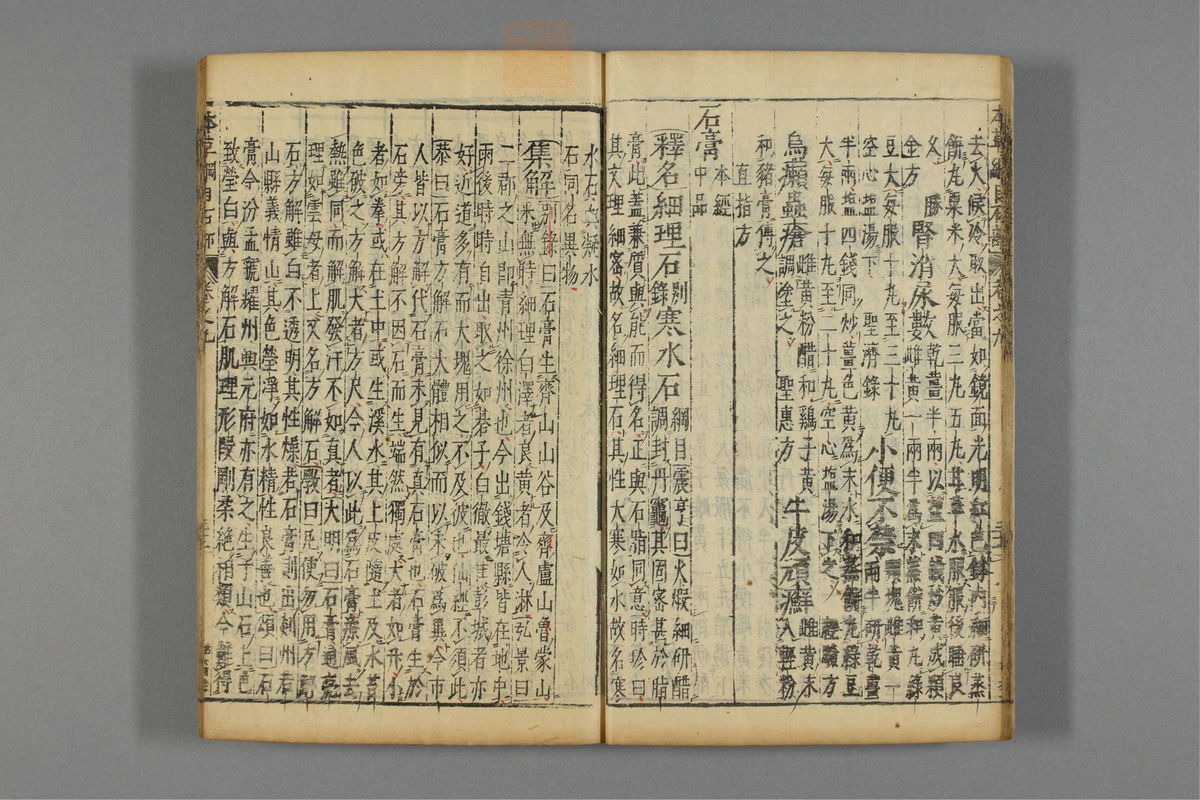 去火候冷取出當如鏡面光明紅色鉢內細研蒸
餅丸粟米大每服三丸五丸甘草水服服後睡良
久 勝金方 腎消尿數 乾薑半兩以
豆大每服十丸至三十丸
空心鹽湯下 聖濟錄 小便不禁
半兩鹽四錢同炒薑色黃爲末水和蒸餅丸綠豆
大每服十丸至二十丸空心鹽湯下之 經驗方
烏癩蟲瘡 雌黃粉醋和雞子黃調塗之 聖惠方 牛皮頑癬 雌黃末入輕粉
和豬膏傅之
直指方
石膏 本經中品
釋名細理石別錄寒水石綱目震亨曰火煅細研醋調封丹竈其固密甚於脂
膏此蓋兼質與能而得名正與石脂同意時珍曰
其文理細密故名細理石其性大寒如水故名寒
水石與凝水
石同名異物
集解別錄曰石膏生齊山山谷及齊盧山魯蒙山
采無時細理白澤者良黃者令人淋弘景曰
二郡之山即青州徐州也今出錢塘縣皆在地中
雨後時時自出取之如棊子白徹最佳彭城者亦
好近道多有而大塊用之不及彼也仙經不須此
恭曰石膏方解石大體相似而以未破爲異今市
人皆以方解代石膏未見有真石膏也石膏生於
石旁其方解不因石而生端然獨處大者如升小
者如拳或在土中或生溪水其上皮隨土及水苔
色破之方解大者方尺今人以此爲石膏療風去
熱雖同而解肌發汗不如真者大明曰石膏通亮
理如雲母者上又名方解石斆曰凡使勿用方解
石方解雖白不透明其性燥若石膏則出剡州茗
山縣義情山其色瑩淨如水精性良善也頌曰石
膏今汾孟虢耀州興元府亦有之生於山石上色
致瑩白與方解石肌理形段剛柔絕相類今難得
本草綱目石部 卷之九